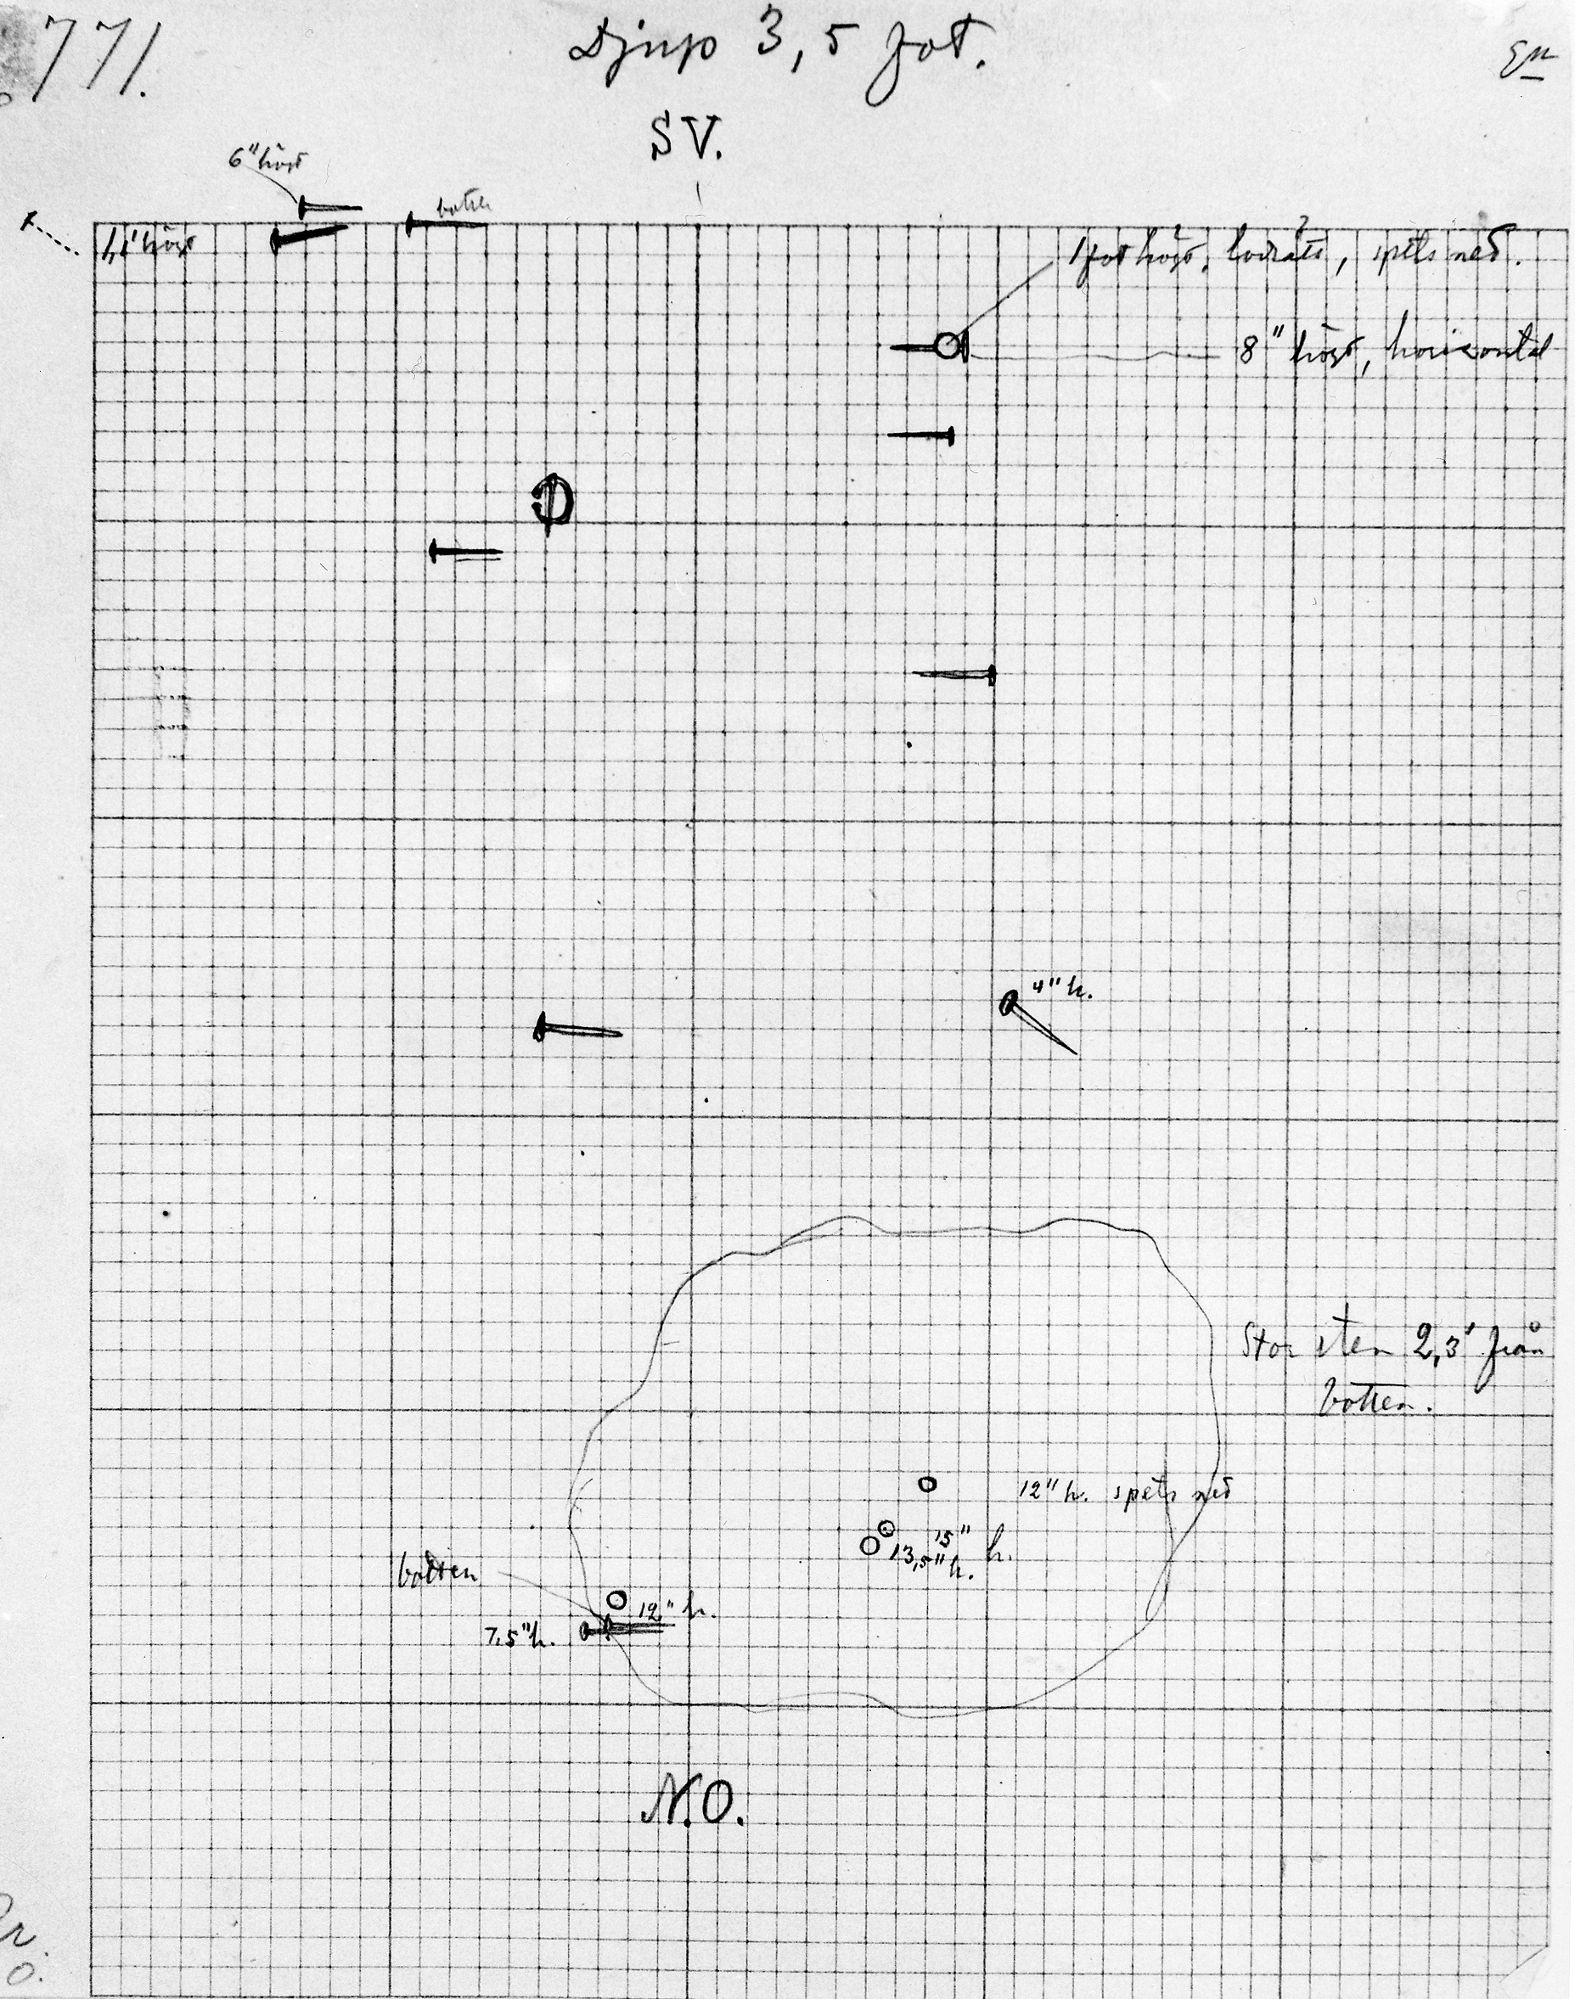 771.
Djup 3,5 fot.
SV.
6" högt
botten
1,1' högt
1 fot högt, lodrätt, spets ned.
8" högt, horisontal
4" h.
Stor sten 2,3' från
botten.
12" h. spets ned
15" h.
13,5" h.
botten
12" h.
7.5" h.
N.O.